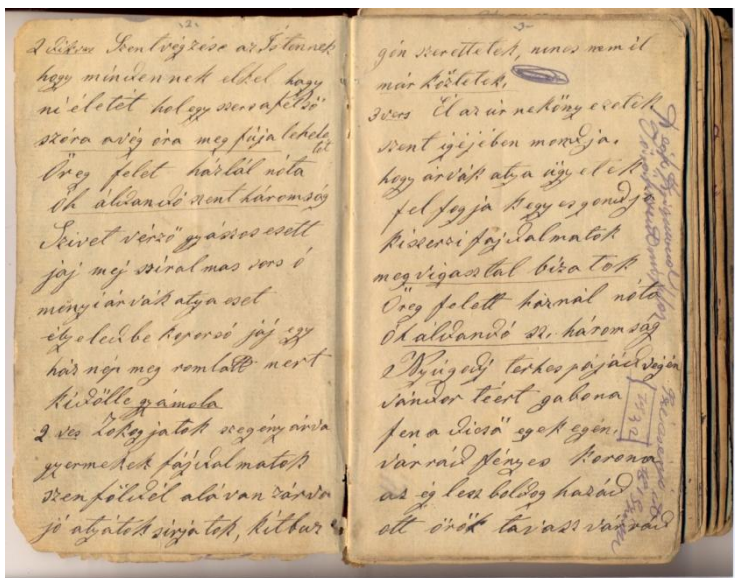 -2-
2dikves Szent végzése az Istennek
hogy mindennek elkel hagy
ni életét hol egy szersafelső
szóra a vég óra meg fújja lehele
tét
Öreg felet házlál nóta
Óh áldandó szent háromság
Szivet vérző gyászos esett
jaj mej sziralmas sors ó
menyi árvák atya eset
életedbe koporsó jáj egy
ház nép meg romlatt mert
kidölle gyámola
2 ves Zokogjatok szegény árva
gyermekek fájdalmatok
szenföldél alá van zárva
jó atyátok sirjatok, kit buz
-3-
gón szerettetek, nincs nem él
már köztetek.
3vers Él az úr ne könyezetek
szent igéjében mondja.
hogy árvák atya ügyetek
fel fogja kegyes gondj
kiszerzi fájdalmatok
megvigasztal bizatok
Öreg felett háznál nóta
Óh áldandó sz. háromság
Nyúgodj terhes pájád végén
vándor téert gabona
fen a dicső egek egén,
vár rád fényes korona
az ég lesz boldog hazád
ott örök tavasz vár rád
1932